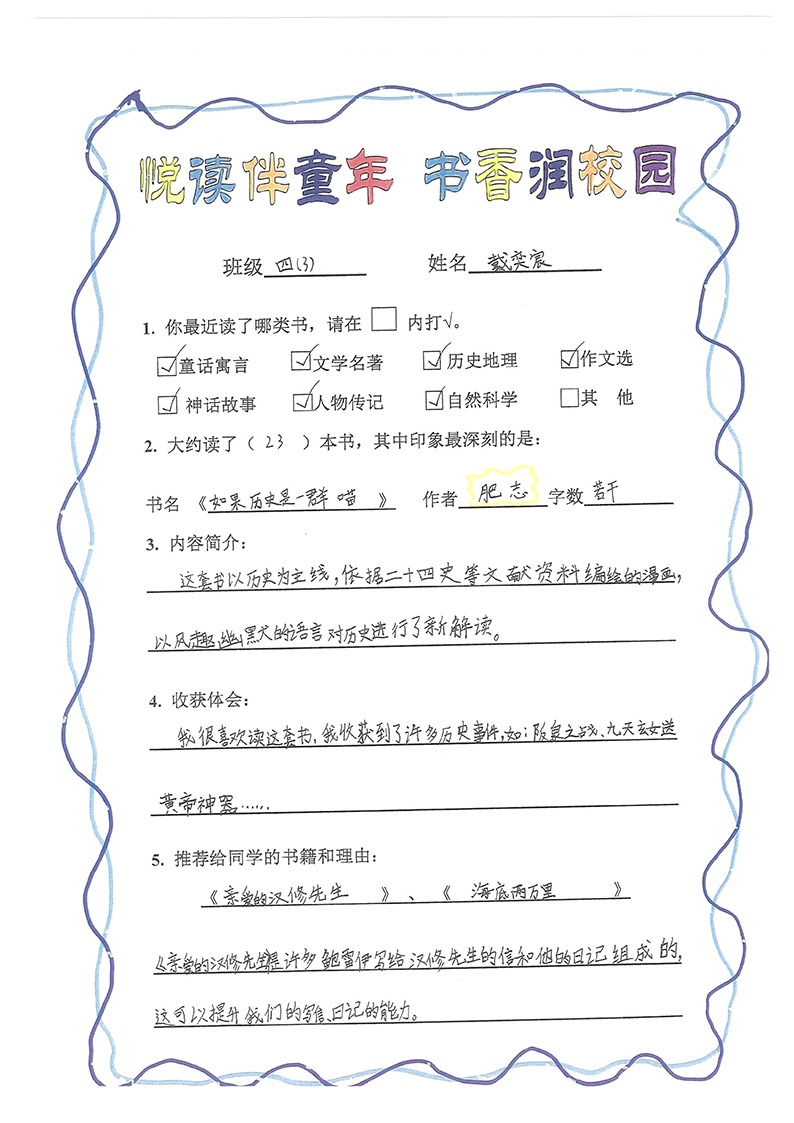 悦读伴童年 书香润校园
班级 四(3) 姓名 戴奕宸
1. 你最近读了哪类书，请在 □ 内打√。
☑童话寓言 ☑文学名著 ☑历史地理 ☑作文选
☑神话故事 ☑人物传记 ☑自然科学 □其 他
2. 大约读了（ 23 ）本书，其中印象最深刻的是：
书名 《如果历史是一群喵 》 作者 肥志 字数 若干
3. 内容简介：
这套书以历史为主线，依据二十四史等文献资料编绘的漫画，
以风趣幽默的语言对历史进行了新解读。
4. 收获体会：
我很喜欢读这套书，我收获到了许多历史事件，如：阪泉之战、九天玄女送
黄帝神器……
5. 推荐给同学的书籍和理由：
《亲爱的汉修先生 》、《 海底两万里 》
《亲爱的汉修先生》是许多鲍雷伊写给汉修先生的信和他的日记组成的，
这可以提升我们的写信、日记的能力。